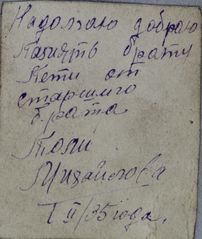 На долгую добрую
Память брату
Пети от
старшего
брата
Толи
Михайлова
II/35 года.